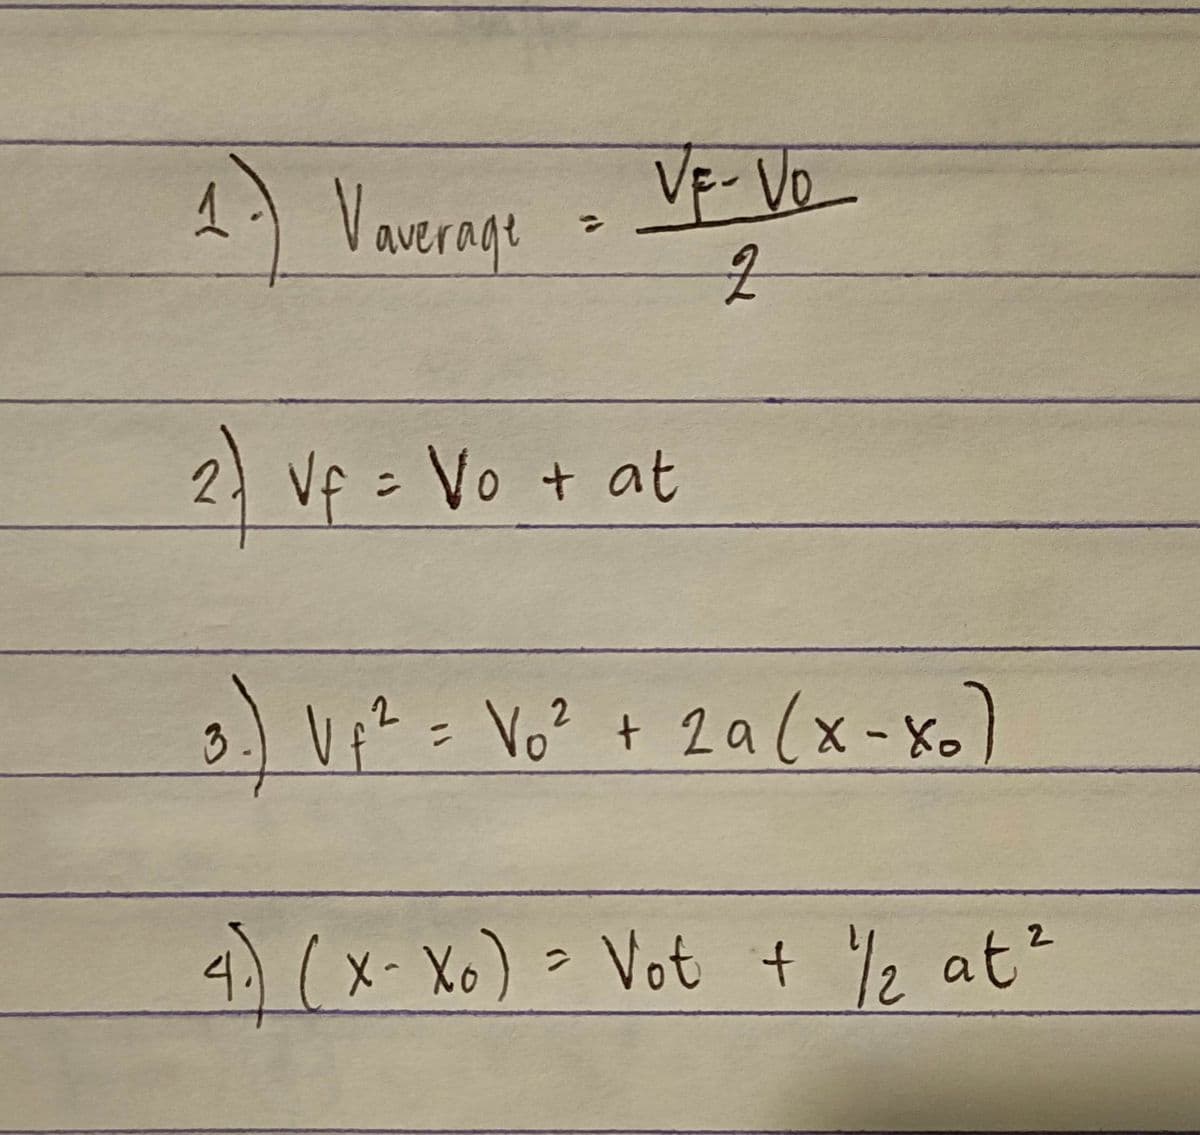 1.) Vaverage = VF - Vo / 2
2.) Vf = Vo + at
3.) Vf² = Vo² + 2a(x - xo)
4.) (x - xo) = Vot + 1/2 at²